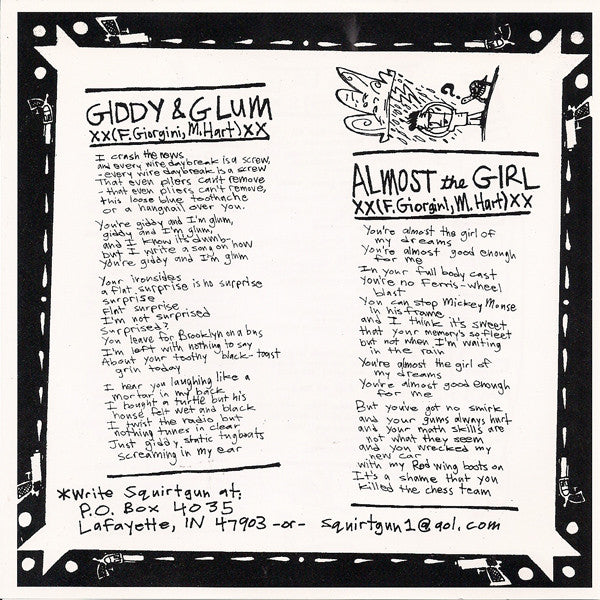 GIDDY & GLUM
XX(F. Giorgini, M. Hart)XX
I crash the rows
and every wire daybreak is a screw,
-every wire daybreak is a screw
That even pliers can't remove
- that even pliers can't remove,
this loose blue toothache
or a hangnail over you.
You're giddy and I'm glum,
giddy and I'm glum,
and I know it's dumb
but I write a song on how
You're giddy and I'm glum
Your ironsides
a flat surprise is no surprise
surprise
Flat surprise
I'm not surprised
Surprised?
You leave for Brooklyn on a bus
I'm left with nothing to say
About your toothy black-toast
grin today
I hear you laughing like a
mortar in my back
I bought a turtle but his
house felt wet and black
I twist the radio but
nothing tunes in clear
Just giddy, static tugboats
screaming in my ear
?
ALMOST the GIRL
XX(F. Giorgini, M. Hart)XX
You're almost the girl of
my dreams
You're almost good enough
for me
In your full body cast
you're no Ferris-wheel
blast
You can stop Mickey Mouse
in his frame
and I think it's sweet
that your memory's so fleet
but not when I'm waiting
in the rain
You're almost the girl of
my dreams
You're almost good enough
for me
But you've got no smirk
and your gums always hurt
and your math skills are
not what they seem
and you wrecked my
new car
with my Red wing boots on
It's a shame that you
killed the chess team
*Write Squirtgun at:
P.O. Box 4035
Lafayette, IN 47903 -or- squirtgun1@aol.com